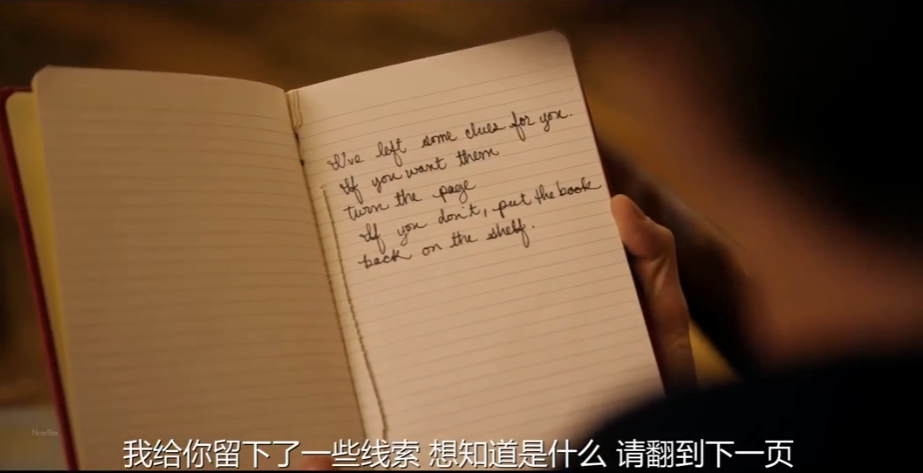 I've left some clues for you.
If you want them
turn the page
If you don't, put the book
back on the shelf.
我给你留下了一些线索 想知道是什么 请翻到下一页